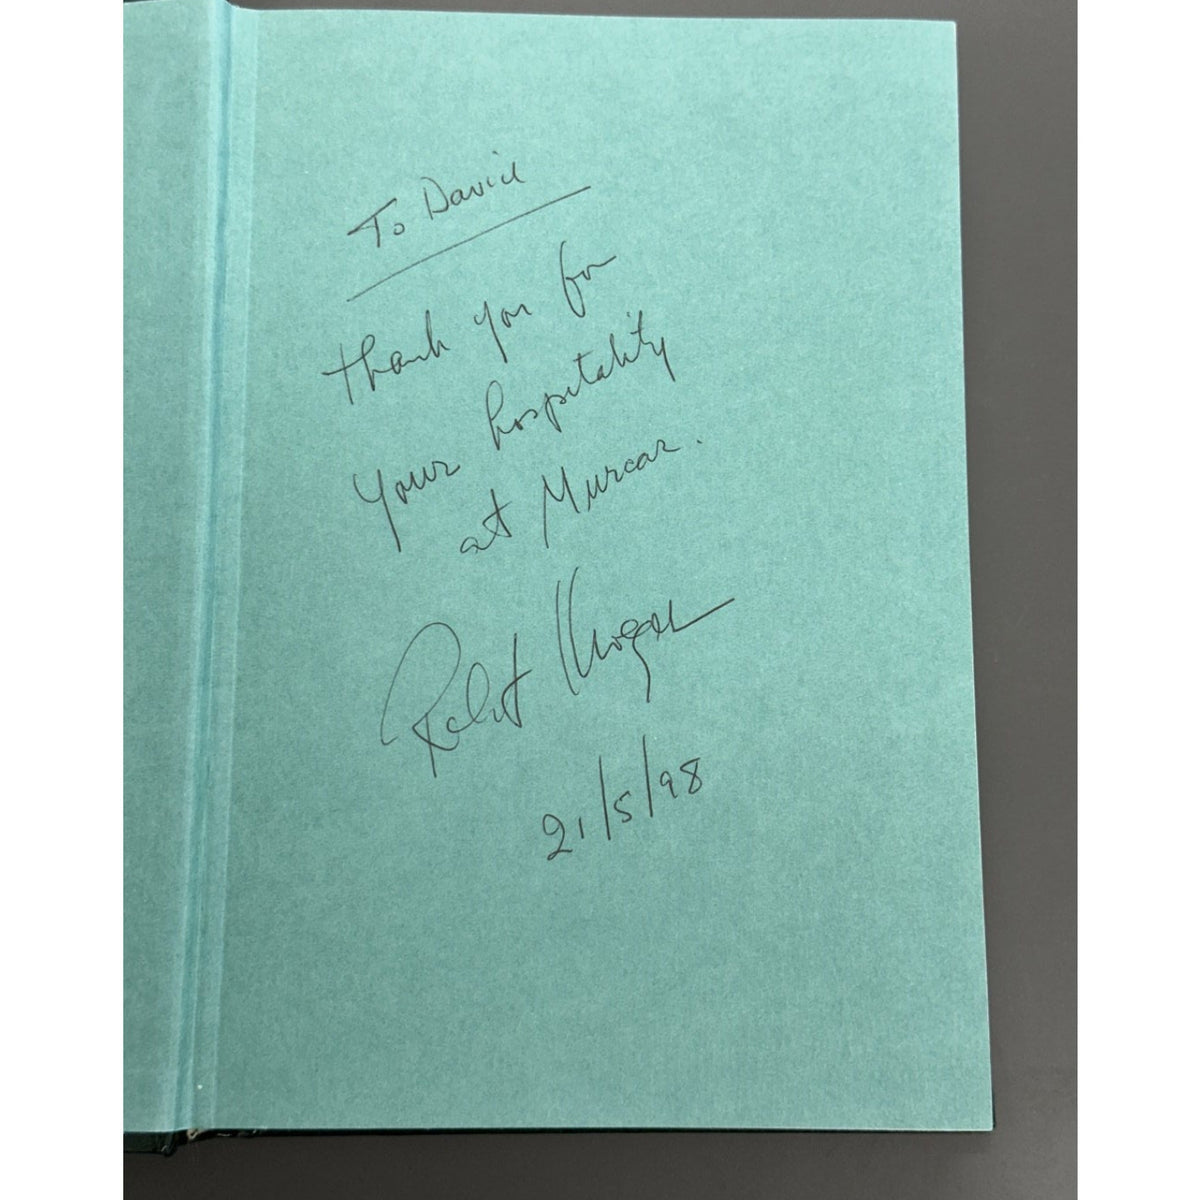 To David
Thank you for
your hospitality
at Murcar.
Robert
21/5/98